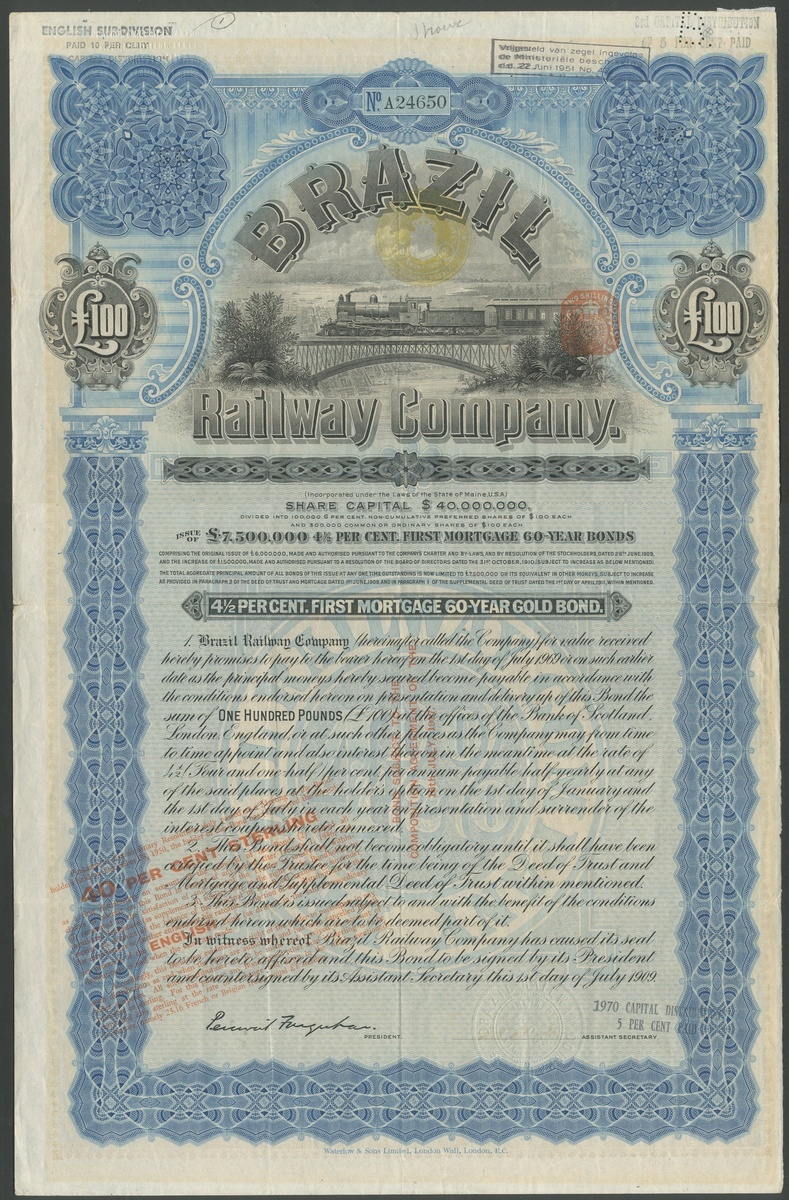 ENGLISH SUBDIVISION
PAID 10 PER CENT
CAPITAL DISTRIBUTION
Vrijgesteld van zegel ingevolge
de Ministeriële
d.d. 22 Juni 1951 No.
PER CENT PAID
No A24650
BRAZIL
£100
£100
Railway Company.
(Incorporated under the Laws of the State of Maine, U.S.A.)
SHARE CAPITAL $40,000,000,
DIVIDED INTO 100,000 6 PER CENT. NON-CUMULATIVE PREFERRED SHARES OF $100 EACH
AND 300,000 COMMON OR ORDINARY SHARES OF $100 EACH
ISSUE OF £7,500,000 4½ PER CENT. FIRST MORTGAGE 60-YEAR BONDS
COMPRISING THE ORIGINAL ISSUE OF £6,000,000, MADE AND AUTHORISED PURSUANT TO THE COMPANY'S CHARTER AND BY-LAWS, AND BY RESOLUTION OF THE STOCKHOLDERS, DATED 28TH JUNE, 1909,
AND THE INCREASE OF £1,500,000, MADE AND AUTHORISED PURSUANT TO A RESOLUTION OF THE BOARD OF DIRECTORS DATED THE 31ST OCTOBER, 1910, (SUBJECT TO INCREASE AS BELOW MENTIONED).
THE TOTAL AGGREGATE PRINCIPAL AMOUNT OF ALL BONDS OF THIS ISSUE AT ANY ONE TIME OUTSTANDING IS NOW LIMITED TO £7,500,000 OR ITS EQUIVALENT IN OTHER MONEYS, SUBJECT TO INCREASE
AS PROVIDED IN PARAGRAPH 3 OF THE DEED OF TRUST AND MORTGAGE DATED 1ST JUNE, 1909 AND IN PARAGRAPH 1 OF THE SUPPLEMENTAL DEED OF TRUST DATED THE 1ST DAY OF APRIL, 1911, WITHIN MENTIONED.
4½ PER CENT. FIRST MORTGAGE 60-YEAR GOLD BOND.
1. Brazil Railway Company (hereinafter called the Company) for value received
hereby promises to pay to the bearer hereof on the 1st day of July 1969 or on such earlier
date as the principal moneys hereby secured become payable in accordance with
the conditions endorsed hereon on presentation and delivery up of this Bond the
sum of ONE HUNDRED POUNDS (£100) at the offices of the Bank of Scotland
London, England, or at such other places as the Company may from time
to time appoint and also interest thereon in the meantime at the rate of
4½ (Four and one half) per cent. per annum payable half-yearly at any
of the said places at the holder's option on the 1st day of January and
the 1st day of July in each year on presentation and surrender of the
interest coupons hereto annexed.
2. This Bond shall not become obligatory until it shall have been
certified by the Trustee for the time being of the Deed of Trust and
Mortgage and Supplemental Deed of Trust within mentioned.
3. This Bond is issued subject to and with the benefit of the conditions
endorsed hereon which are to be deemed part of it.
In witness whereof Brazil Railway Company has caused its seal
to be hereto affixed and this Bond to be signed by its President
and countersigned by its Assistant Secretary this 1st day of July 1909.
40 PER CENT STERLING
ENGLISH
1970 CAPITAL
5 PER CENT PAID
PRESIDENT.
ASSISTANT SECRETARY
Waterlow & Sons Limited, London Wall, London, E.C.